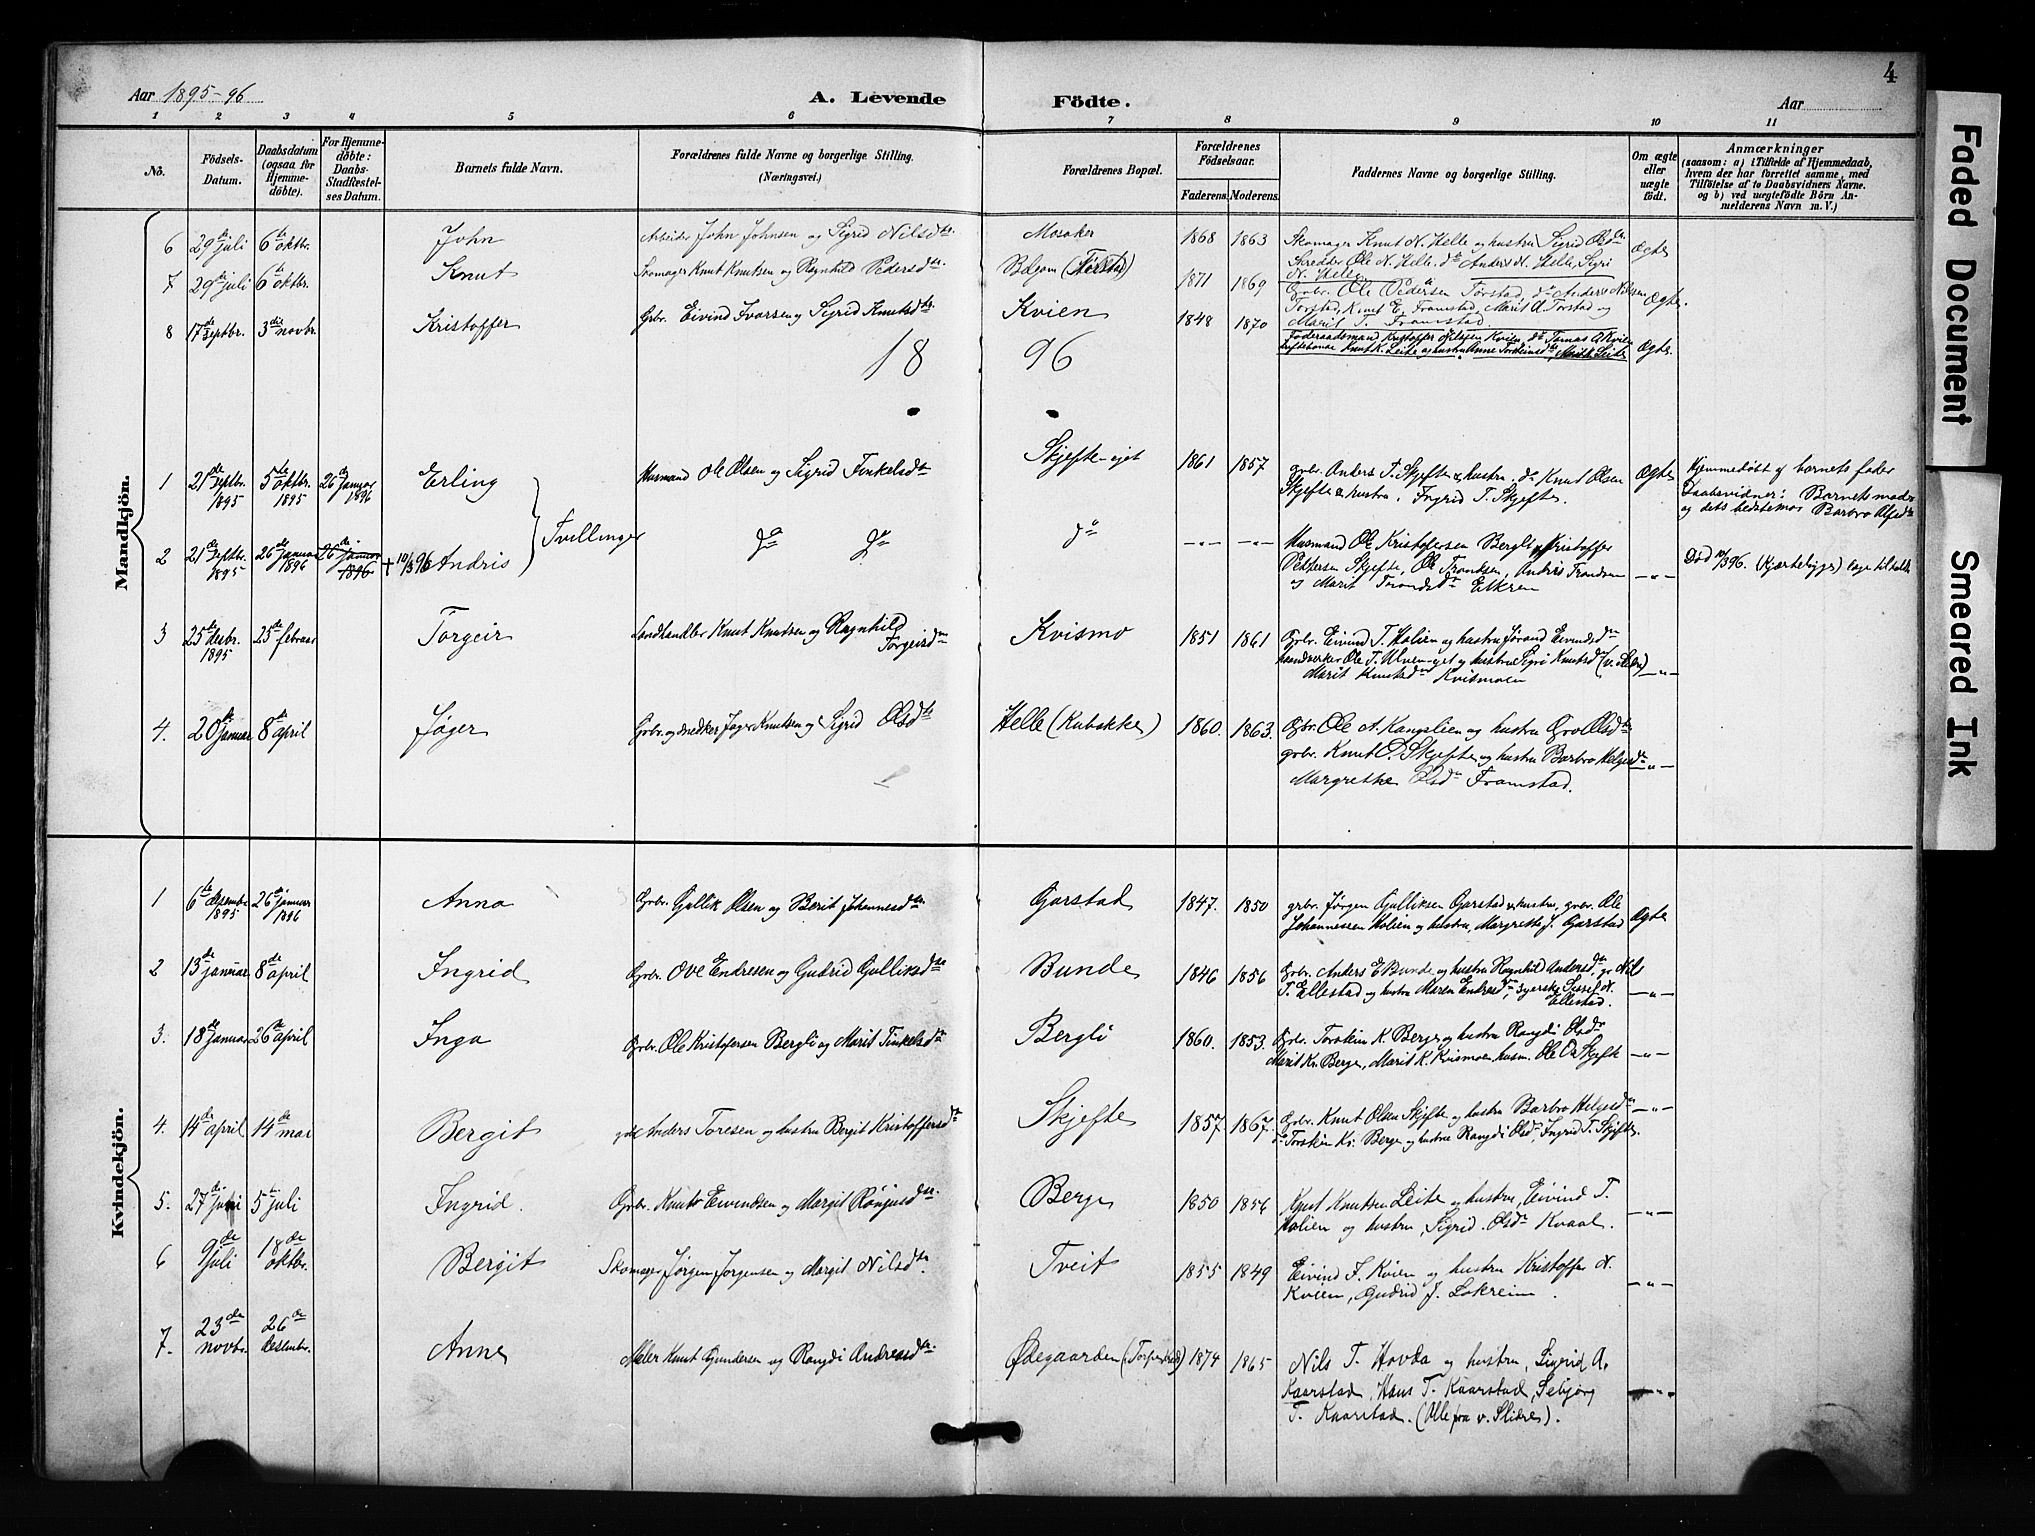 4
Aar 1895-96
A. Levende Födte.
Aar
1 2 3 4 5 6 7 8 9 10 11
No.
Födsels-Datum.
Daabsdatum (ogsaa for Hjemmedöbte).
For Hjemmedöbte: Daabs-Stadfæstelses Datum.
Barnets fulde Navn.
Forældrenes fulde Navne og borgerlige Stilling. (Næringsvei.)
Forældrenes Bopæl.
Forældrenes Födselsaar.
Faderens. Moderens.
Faddernes Navne og borgerlige Stilling.
Om ægte eller uægte födt.
Anmærkninger
(saasom: a) i Tilfælde af Hjemmedaab, hvem der har forrettet samme, med Tilföielse af to Daabsvidners Navne. og b) ved uægtefödte Börn Anmelderens Navn m. V.)
Mandkjön.
6 29de juli 6te oktbr. John Arbeider John Johnsen og Sigrid Nilsdtr. Mosaker 1868 1863 Skomager Knut N. Helle og hustru Sigrid Olsdtr. Ægte
Skredder Ole N. Helle, do Anders N. Helle, Sigri N. Helle
7 29de juli 6te oktbr. Knut Skomager Knut Knutsen og Ragnhild Pedersdtr. Bølgom (Tørstad) 1871 1869 Grbr. Ole Pedersen Torstad, do Anders Nilsen Ægte.
Torstad, Knut E. Framstad, Marit A. Torstad og
Marit T. Framstad.
8 17de Septbr. 3die novbr. Kristoffer Grbr. Eivind Ivarsen og Sigrid Knutsdtr. Kvien 1848 1870 Føderaadsmand Kristoffer Olsen Kvien, do Tomas A Kvien Ægte
Knut K. Leite og hustru Anne Torsteinsdtr, Marit Leite
18 96
1 21de Septbr. 1895 5te oktbr 1895 26de Januar 1896 Erling Husmand Ole Olsen og Sigrid Finkelsdtr Skjefte-eiet 1861 1857 grbr. Anders T. Skjefte & hustru, do Knut Olsen Ægte Hjemmedøbt af barnets fader
Skjefte & hustru. Ingrid T. Skjefte. Daabsvidner: Barnets moder
og dets bedstemor Barbro
Tvillinger
2 21de Septbr. 1895 26de Januar 1896 26de Januar 1896 + 10/3 96 Andris do do do -"- -"- Husmand Ole Kristofersen Bergli, Kristoffer
Pedersen Skjefte, Ole Trondsen, Andris Trondsen
og Marit Trondsdtr Elkren -"- Død 10/3 96. (Kjærtebygge) læge tilkaldt
3 25de desbr. 1895 25de februar Torgeir Landhandler Knut Knutsen og Ragnhild Torgeirsdtr Kvismo 1851 1861 Grbr. Eivind T. Holien og hustru Jorand Eivindsdtr
haandverker Ole T. Ulven-eiet og hustru Sigri Knutsd -"-
Marit Knutsdtr Kvismoen
4. 20de januar 8de april Jøger Grbr. og snedker Jøger Knutsen og Sigrid Olsdtr Helle (Kubakke) 1860. 1863. Grbr. Ole A. Kangslien og hustru Gro Olsdtr
grbr. Knut O. Skjefte og hustru Barbro Helgesdtr -"-
Margrethe Olsdtr Framstad.
Kvindekjön.
1 6te desembr 1895 26de januar 1896 Anna Grbr. Gullik Olsen og Berit Johannesdtr. Garstad 1847. 1850 grbr. Jørgen Gulliksen Garstad & hustru, grbr. Ole Ægte
Johannessen Holien og hustru, Margrethe J. Garstad
2 13de januar 8de april Ingrid Grbr. Ove Endresen og Gudrid Gulliksdtr Bunde 1846 1856 Grbr. Anders E Bunde og hustru Ragnhild Andersdtr, gr. Nils
T. Ellestad og hustru Maren Endresdtr, syerske Sissel N. Ellestad. -"-
3. 18de januar 26de april Inga Grbr. Ole Kristofersen Bergli og Marit Finkelsdtr Bergli 1860. 1853. Grbr. Torstein K. Berge og hustru Rangdi Olsdtr
Marit Kr. Berge, Marit K. Kvismoen, husm. Ole Skjefte -"-
4. 14de april 14de mai Bergit gbr Anders Toresen og hustru Bergit Kristoffersdtr Skjefte 1857. 1867. Grbr. Knut Olsen Skjefte og hustru Barbro Helgesdtr -"-
do Torstein Kr. Berge og hustru Rangdi Olsdtr, Ingrid T. Skjefte.
5. 27de juni 5te juli Ingrid. Grbr. Knut Eivindsen og Margit Rangusdtr. Berge 1850 1856 Knut Knutsen Leite og hustru, Eivind T.
Holien og hustru, Sigrid Olsdtr Kvaal. -"-
6 9de juli 18de oktbr. Bergit Skomager Jørgen Jørgensen og Margit Nilsdtr. Tveit 1855 1849 Eivind F. Kvien og hustru Kristoffer N.
Kvien, Gudrid J. Lokreim. -"-
7. 23de novbr. 26de desembr. Anne Maler Knut Gundersen og Rangdi Andersdtr. Ødegaarden 1874 1865 Nils T. Hovda og hustru, Sigrid A.
Kaarstad, Hans T. Kaarstad, Sebjørg -"-
T. Kaarstad. (Alle fra v. Slidre).
Faded Document
Smeared Ink